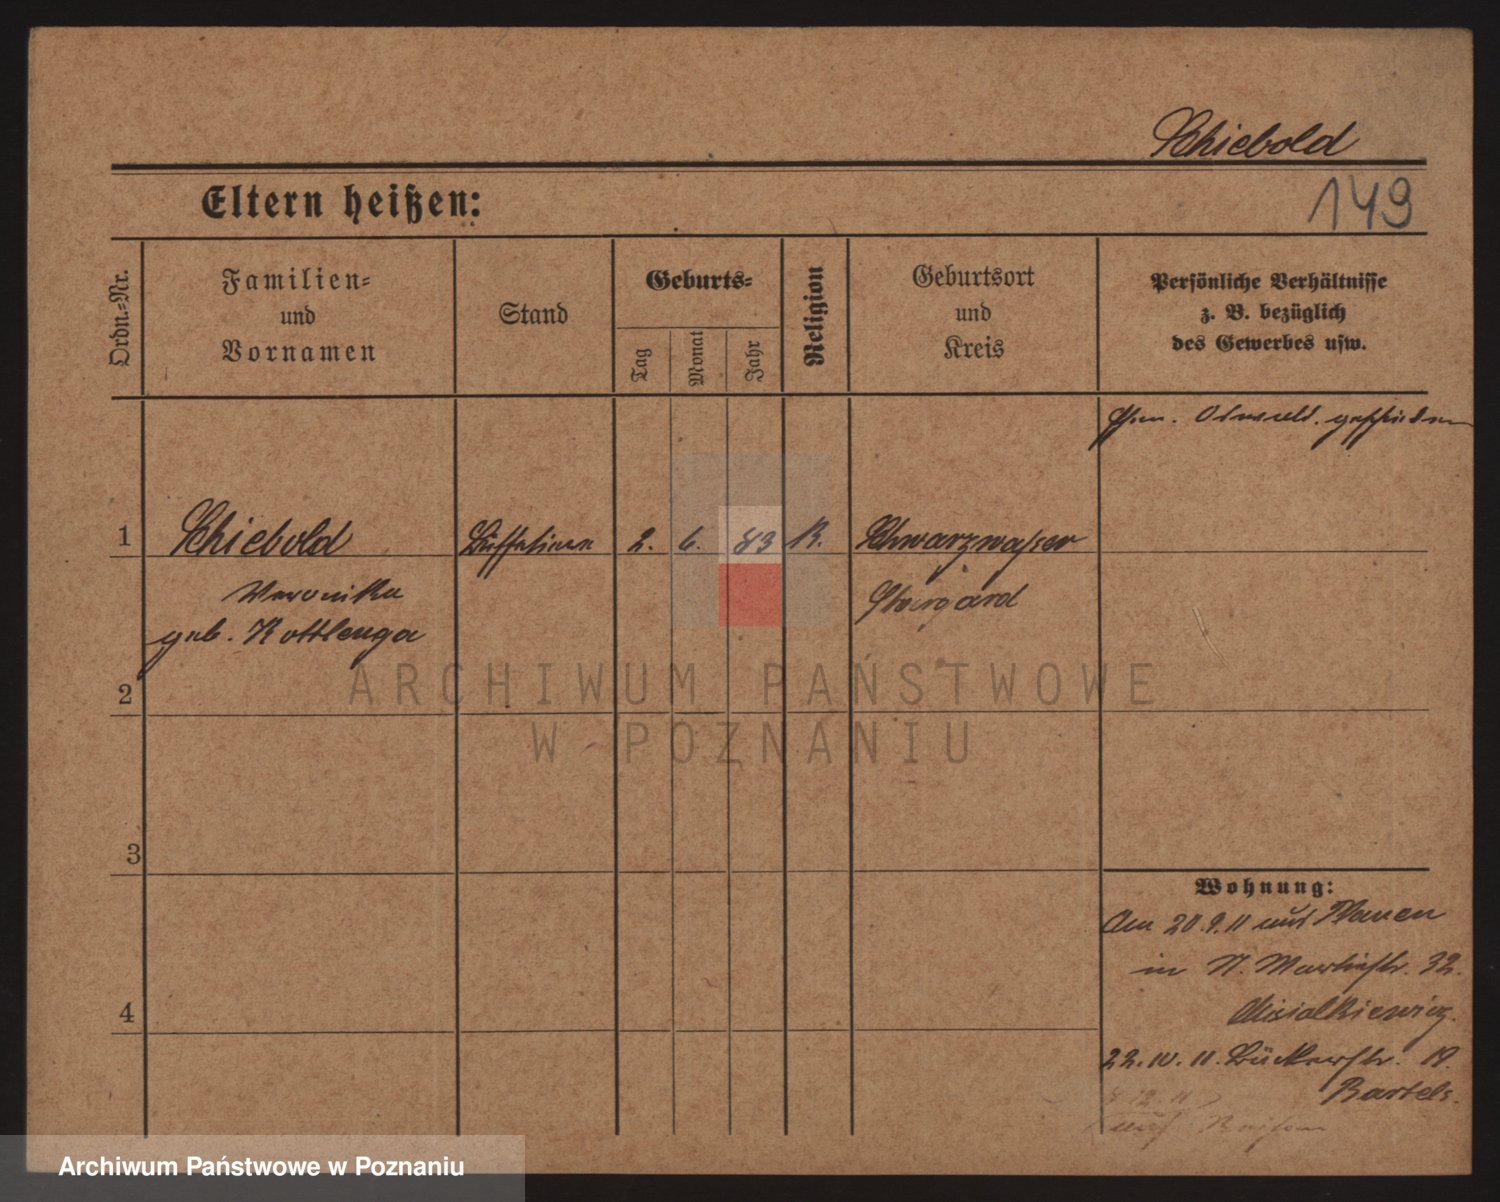 Schiebold
149
Eltern heißen:
Ordn.=Nr.
Familien=
und
Vornamen
Stand
Geburts=
Tag
Monat
Jahr
Religion
Geburtsort
und
Kreis
Persönliche Verhältnisse
z. B. bezüglich
des Gewerbes usw.
geschieden
1 Schiebold Büffetieren 2. 6. 83 K. Schwarzwasser
Veronika Stargard
geb. Kottlenga
2
3
4
Wohnung:
Am 20.9.11 aus
in St. Martinstr. 32.
22.10.11. Bäckerstr. 19.
Bartels.
ARCHIWUM PAŃSTWOWE
W POZNANIU
Archiwum Państwowe w Poznaniu